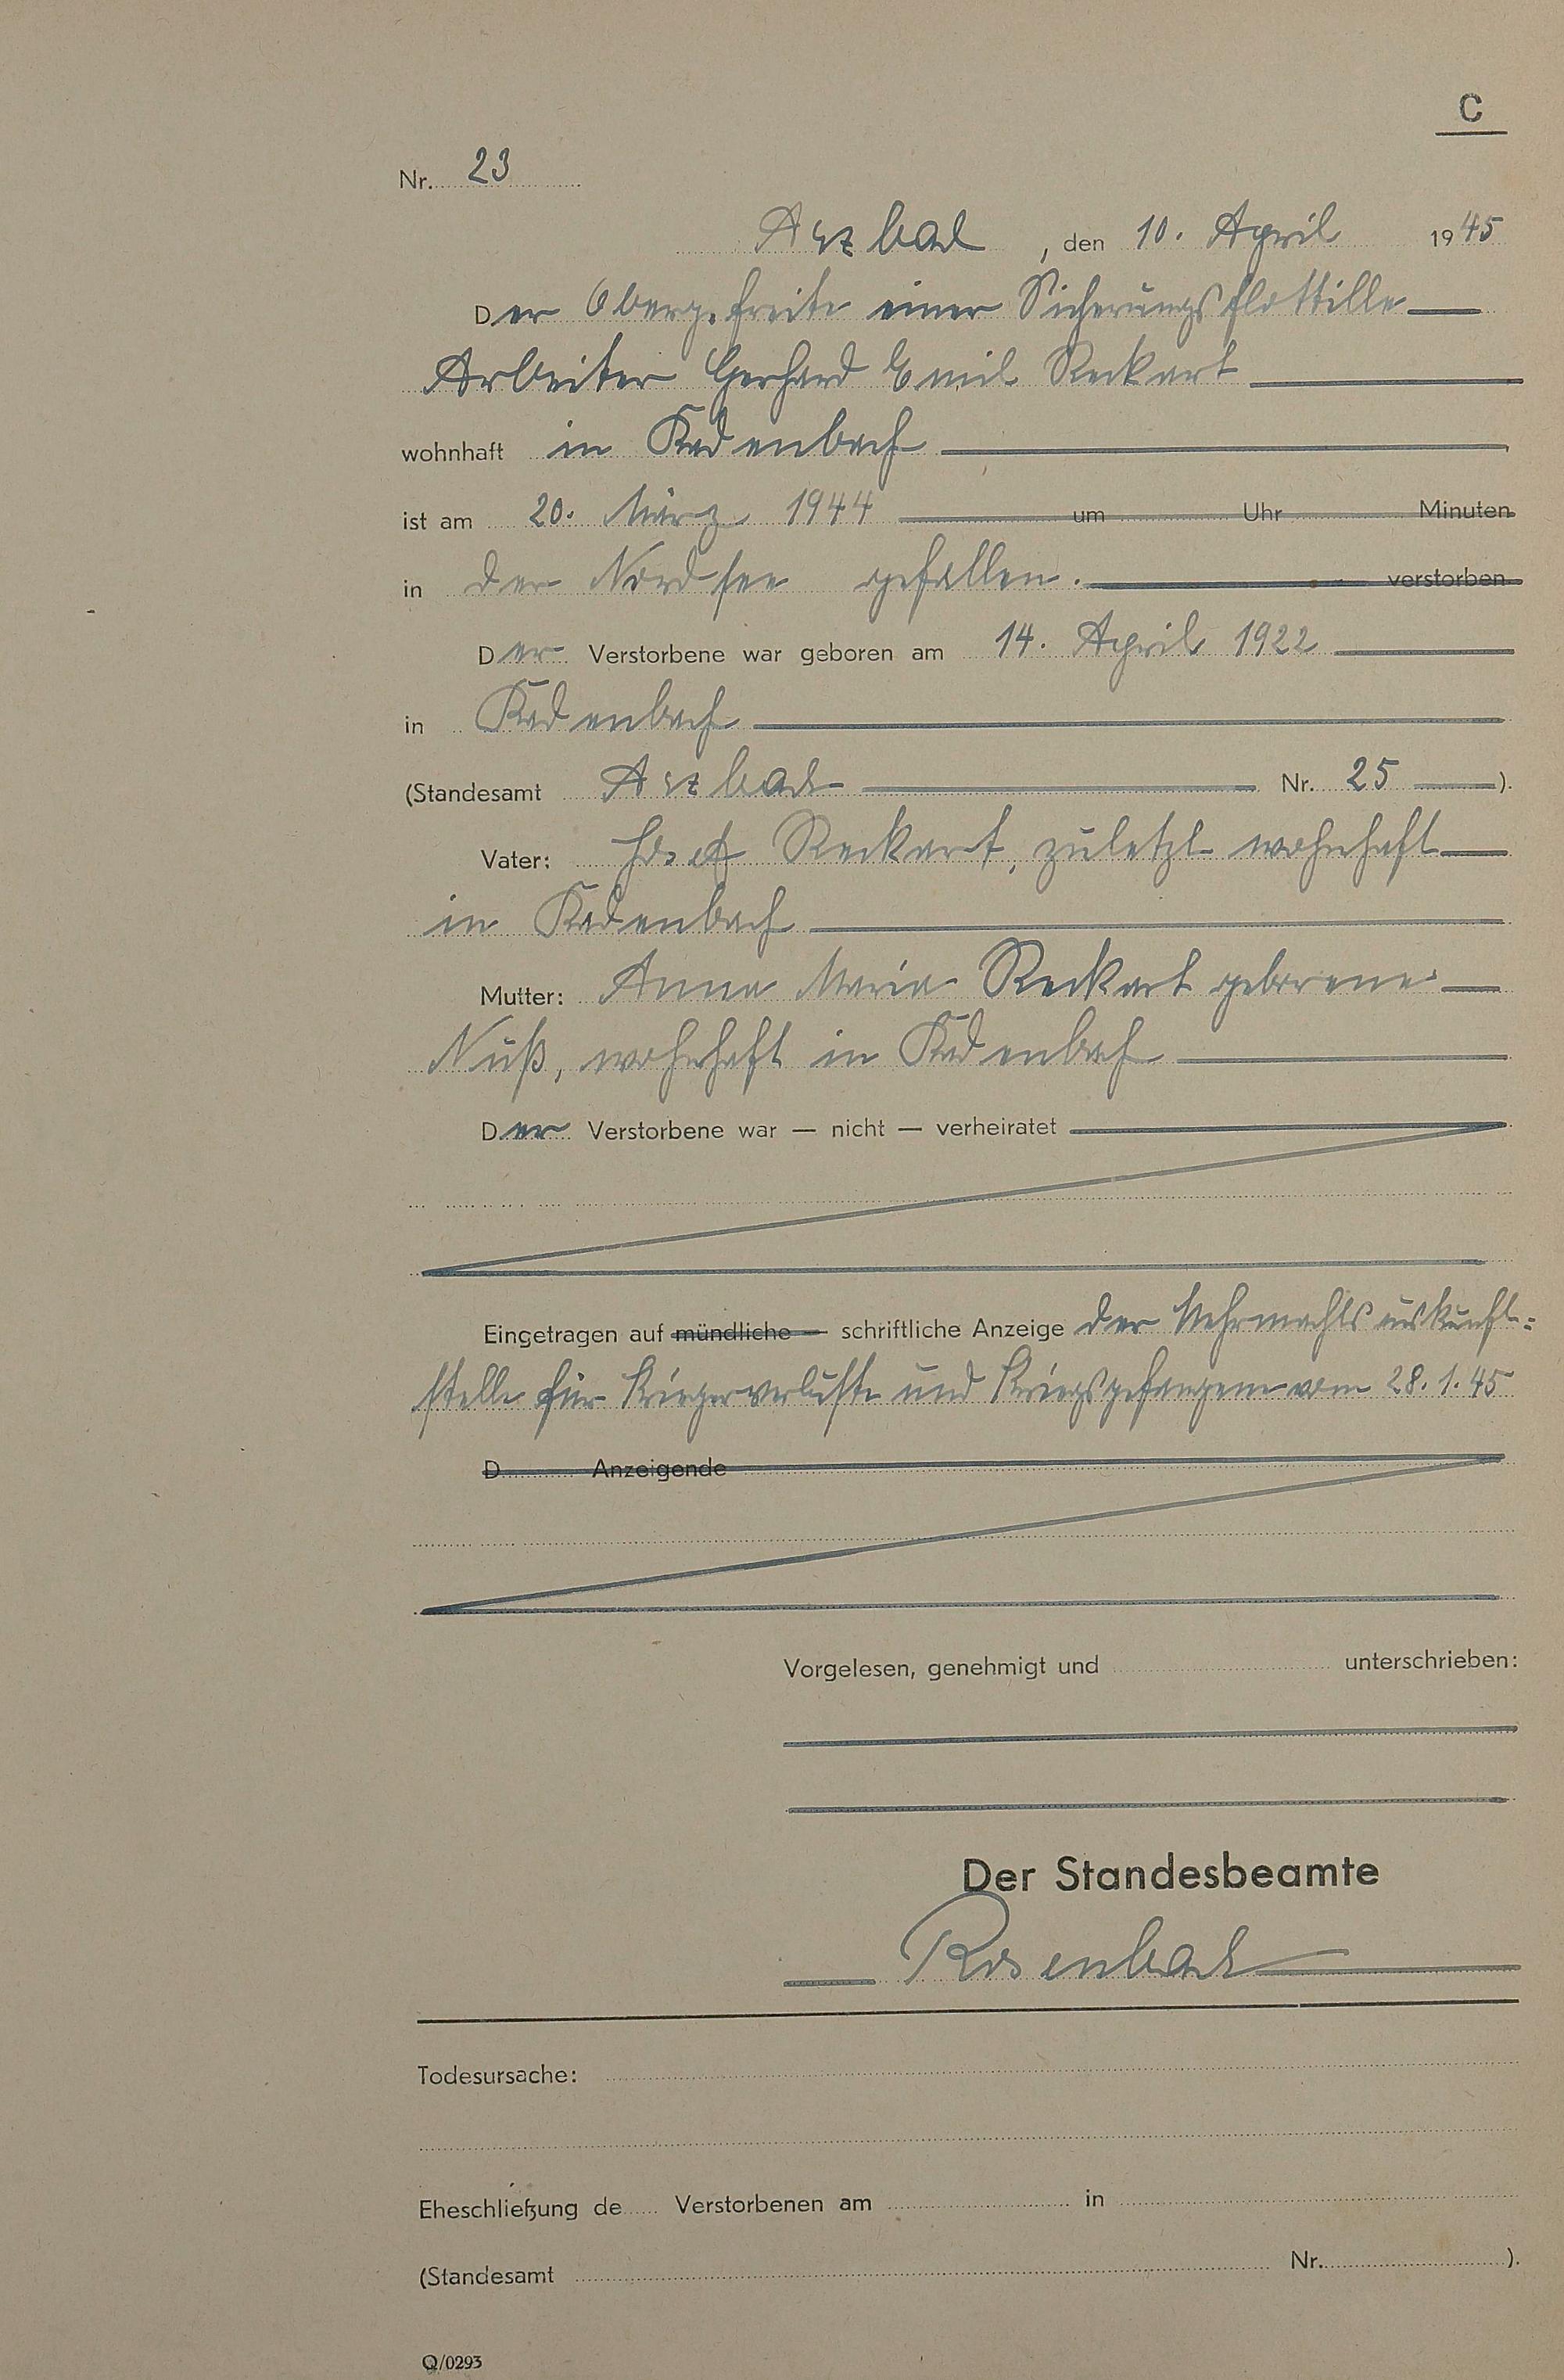 C
Nr. 23
Arzbach, den 10. April 1945
Der Oberg.freite einer Sicherungsflottille
Arbeiter Gerhard Emil Reckart
wohnhaft in Kadenbach
ist am 20. März 1944 um Uhr Minuten
in der Nordsee gefallen. verstorben
Der Verstorbene war geboren am 14. April 1922
in Kadenbach
(Standesamt Arzbach Nr. 25 ).
Vater: Josef Reckart, zuletzt wohnhaft
in Kadenbach
Mutter: Anna Maria Reckart geborene
Nuß, wohnhaft in Kadenbach
Der Verstorbene war — nicht — verheiratet
Eingetragen auf mündliche — schriftliche Anzeige der Wehrmachtsauskunft-
stelle für Kriegerverluste und Kriegsgefangene vom 28.1.45
D Anzeigende
Vorgelesen, genehmigt und unterschrieben:
Der Standesbeamte
Rosenbach
Todesursache:
Eheschließung de Verstorbenen am in
(Standesamt Nr. ).
Q/0293